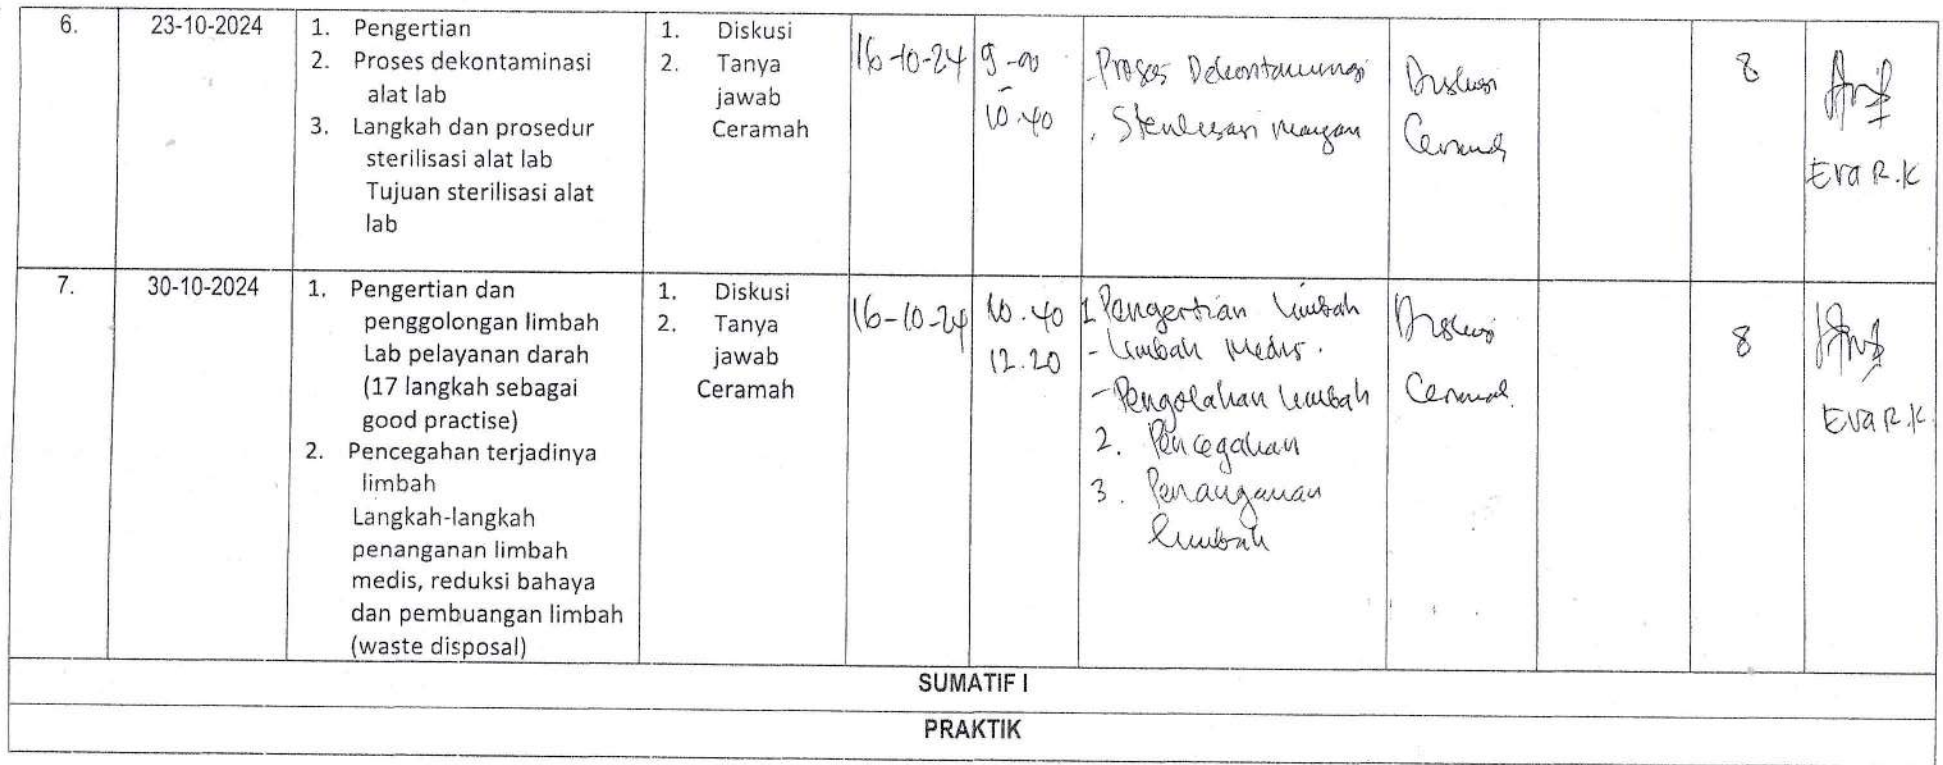 6.
23-10-2024
1. Pengertian
2. Proses dekontaminasi
alat lab
3. Langkah dan prosedur
sterilisasi alat lab
Tujuan sterilisasi alat
lab
1. Diskusi
2. Tanya
jawab
Ceramah
16-10-24
9-00
-
10.40
-Proses Dekontaminasi
. Sterilisasi
Diskusi
Ceramah
8
Eva R.K
7.
30-10-2024
1. Pengertian dan
penggolongan limbah
Lab pelayanan darah
(17 langkah sebagai
good practise)
2. Pencegahan terjadinya
limbah
Langkah-langkah
penanganan limbah
medis, reduksi bahaya
dan pembuangan limbah
(waste disposal)
1. Diskusi
2. Tanya
jawab
Ceramah
16-10-24
10.40
12.20
1 Pengertian limbah
- limbah medis.
- Pengolahan limbah
2. Pencegahan
3. Penanganan
limbah
Diskusi
Ceramah.
8
Eva R.K
SUMATIF I
PRAKTIK